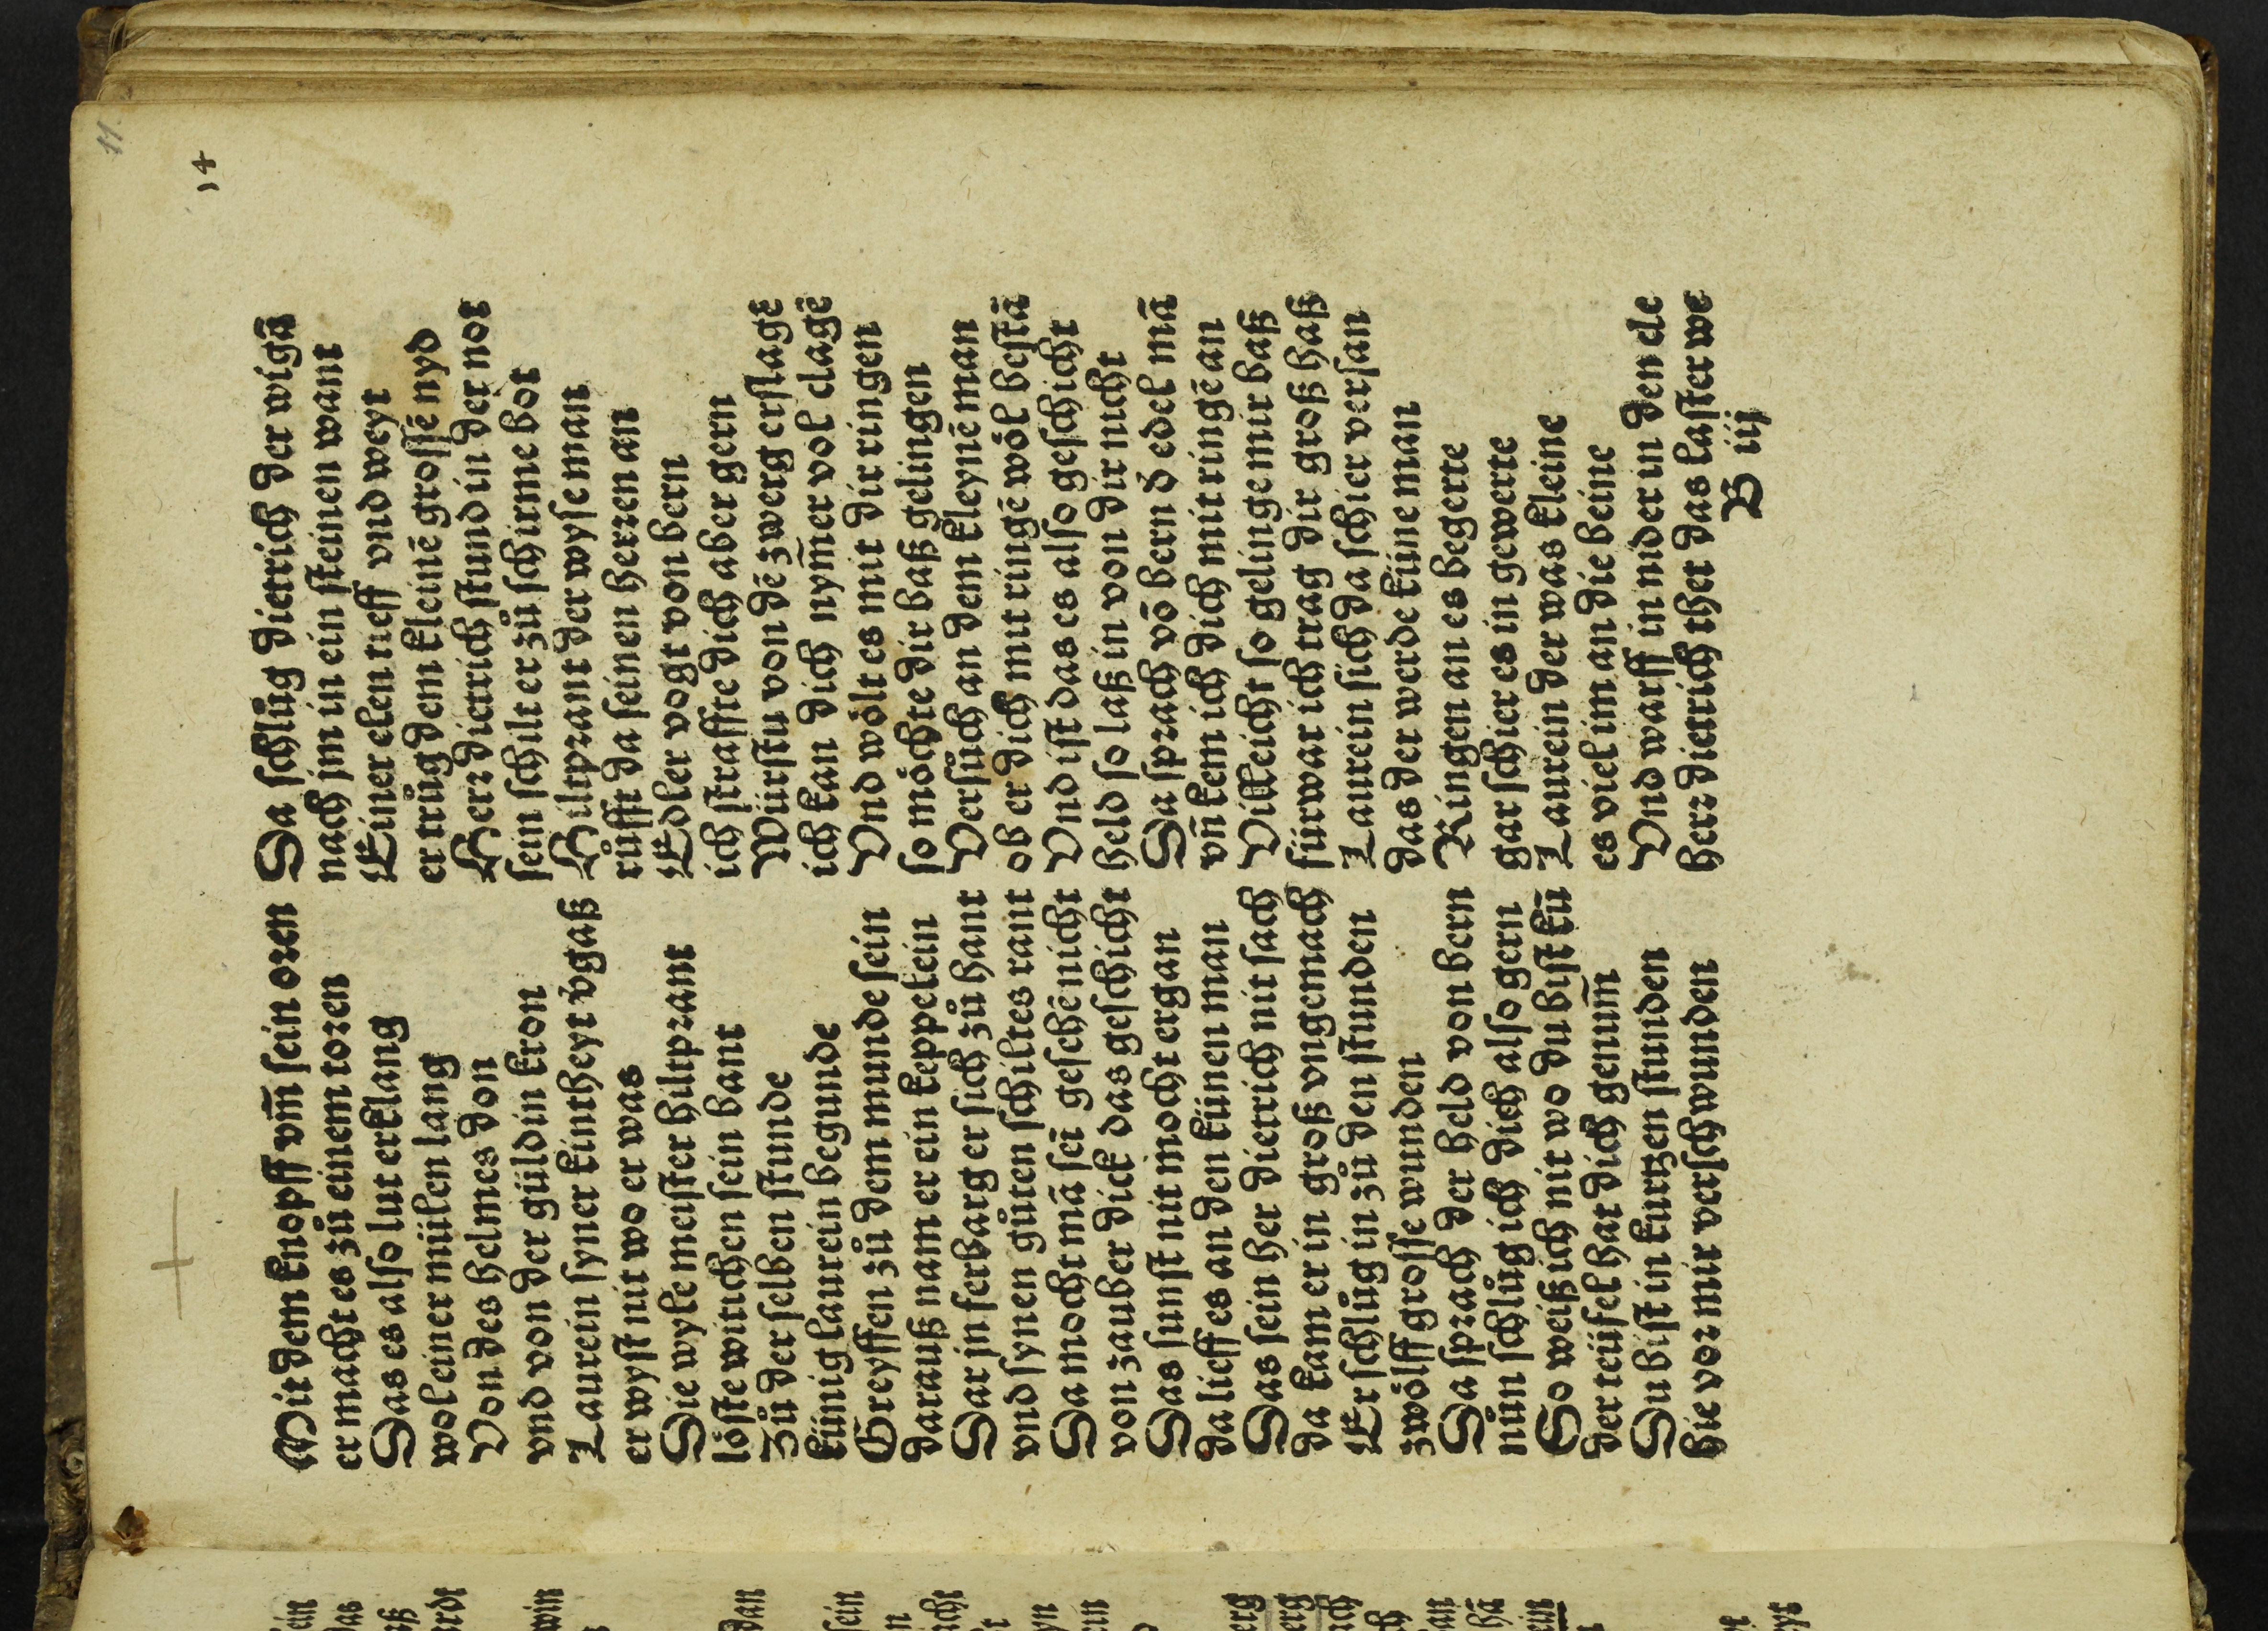 11
14
Mit dem knopff vm̄ sein oren
er macht es zů einem toren
Das es also lut erklang
wol einer mülen lang
Von des helmes don
vnd von der güldin kron
Laurein syner kintheyt v̄gaß
er wyst nit wo er was
Die wyle meister hiltprant
lößte witichen sein bant
Zů der selben stunde
künig laurein begunde
Greyffen zů dem munde sein
darauß nam er ein keppelein
Dar jn ferbarg er sich zů hant
vnd synen gůten schiltes rant
Da mocht mā sei͂ geschē nicht
von zauber dick das geschicht
Das sunst nit mocht ergan
da lieff es an den künen man
Das sein her dietrich nit sach
da kam er in groß vngemach
Er schlůg in zů den stunden
zwölff grosse wunden
Da sprach der held von bern
nůn schlůg ich dich also gern
So weiß ich nit wo du bist kū
der teüfel hat dich genum̄
Du bist in kurtzen stunden
hie vor mir verschwunden
Da schlůg dietrich der wigā
nach jm in ein steinen want
Einer elen tieff vnd weyt
er trůg dem kleinē grossē nyd
Herr dietrich stund in der not
sein schilt er zů schirme bot
Hiltprant der wyse man
růfft da seinen herzen an
Edler vogt von bern
ich straffte dich aber gern
Würstu von dē zwerg erslagē
ich kan dich nym̄er vol clagē
Vnd wölt es mit dir ringen
so möchte dir baß gelingen
Versůch an dem kleynē man
ob er dich mit ringē wöl bestā
Vnd ist das es also geschicht
held so laß in von dir nicht
Da sprach vō bern d̄ edel mā
vn̄ kem ich dich mit ringē an
Villeicht so gelinge mir baß
fürwar ich trag dir groß haß
Laurein sich da schier versan
das der werde küne man
Ringen an es begerte
gar schier es in gewerte
Laurein der was kleine
es viel im an die beine
Vnd warff in nider in den cle
herr dietrich thet das laster we
B iij